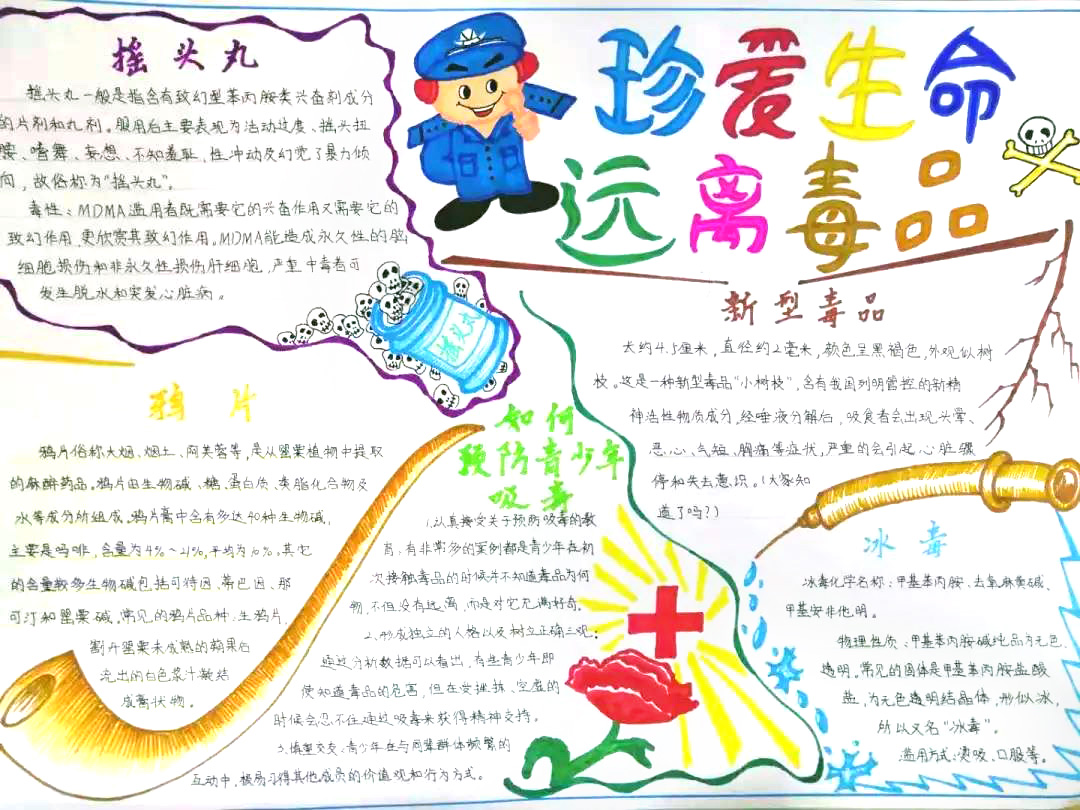 珍爱生命
远离毒品
摇头丸
摇头丸一般是指含有致幻型苯丙胺类兴奋剂成分
的片剂和丸剂。服用后主要表现为活动过度、摇头扭
腰、嗜舞、妄想、不知羞耻,性冲动及幻觉了暴力倾
向,故俗称为“摇头丸”。
毒性:MDMA滥用者既需要它的兴奋作用又需要它的
致幻作用,更欣赏其致幻作用。MDMA能造成永久性的脑
细胞损伤和非永久性损伤肝细胞,严重中毒者可
发生脱水和突发心脏病。
摇头丸
新型毒品
大约4.5厘米,直径约2毫米,颜色呈黑褐色,外观似树
枝。这是一种新型毒品“小树枝”,含有我国列明管控的新精
神活性物质成分,经唾液分解后,吸食者会出现头晕、
恶心、气短、胸痛等症状,严重的会引起心脏骤
停和失去意识。(大家知
道了吗?)
鸦片
鸦片俗称大烟、烟土、阿芙蓉等,是从罂粟植物中提取
的麻醉药品。鸦片由生物碱、糖、蛋白质、类脂化合物及
水等成分所组成。鸦片膏中含有多达40种生物碱,
主要是吗啡,含量为4%~21%,平均为10%,其它
的含量较多生物碱包括可待因、蒂巴因、那
可汀和罂粟碱。常见的鸦片品种:生鸦片,
割开罂粟未成熟的蒴果后
流出的白色浆汁凝结
成膏状物。
如何
预防青少年
吸毒
1.认真接受关于预防吸毒的教
育,有非常多的案例都是青少年在初
次接触毒品的时候并不知道毒品为何
物,不但没有远离,而是对它充满好奇。
2.形成独立的人格以及树立正确三观:
通过分析数据可以看出,有些青少年即
使知道毒品的危害,但在受挫折、空虚的
时候会忍不住通过吸毒来获得精神支持。
3.慎重交友:青少年在与同辈群体频繁的
互动中,极易习得其他成员的价值观和行为方式。
冰毒
冰毒化学名称:甲基苯丙胺、去氧麻黄碱、
甲基安非他明。
物理性质:甲基苯丙胺碱纯品为无色
透明。常见的固体是甲基苯丙胺盐酸
盐,为无色透明结晶体,形似冰,
所以又名“冰毒”。
滥用方式:烫吸、口服等。